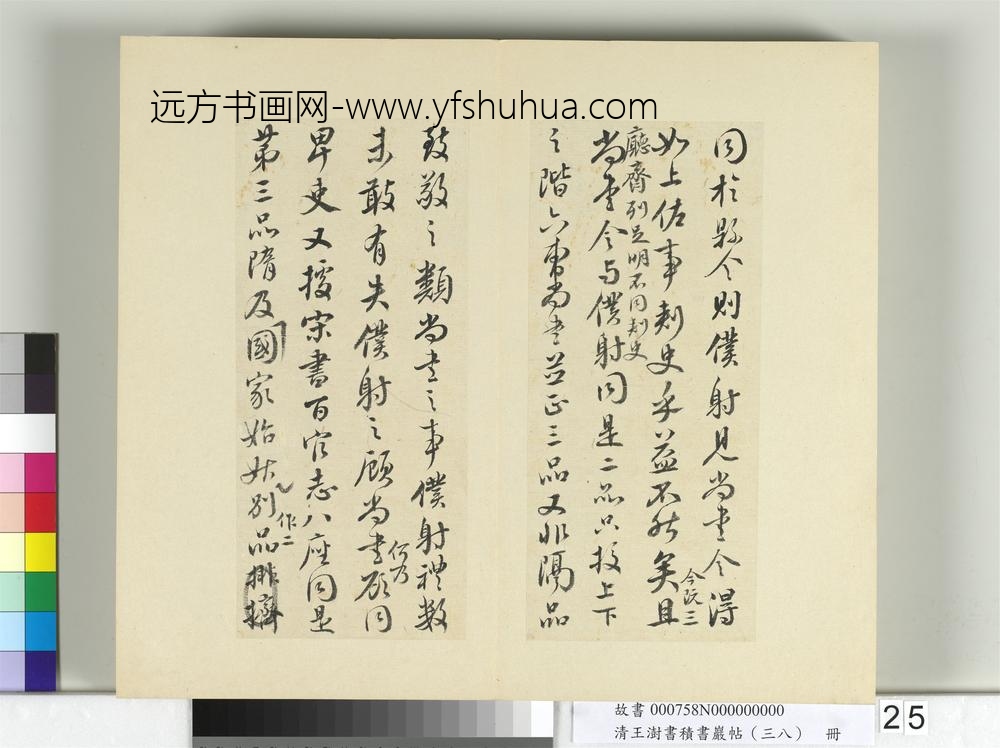 远方书画网-www.yfshuhua.com
同於縣令則僕射見尚書令得
如上佐事刾史乎益不然矣且今既三
廳齊列足明不同刾史
尚書令与僕射同是二品只校上下
之階六曹尚書並正三品又非隔品
致敬之類尚書之事僕射禮數
未敢有失僕射之顧尚書何乃欲同
卑吏又據宋書百官志八座同是
第三品隋及國家始升別作二品
故書 000758N000000000
清王澍書積書巖帖（三八） 冊
25